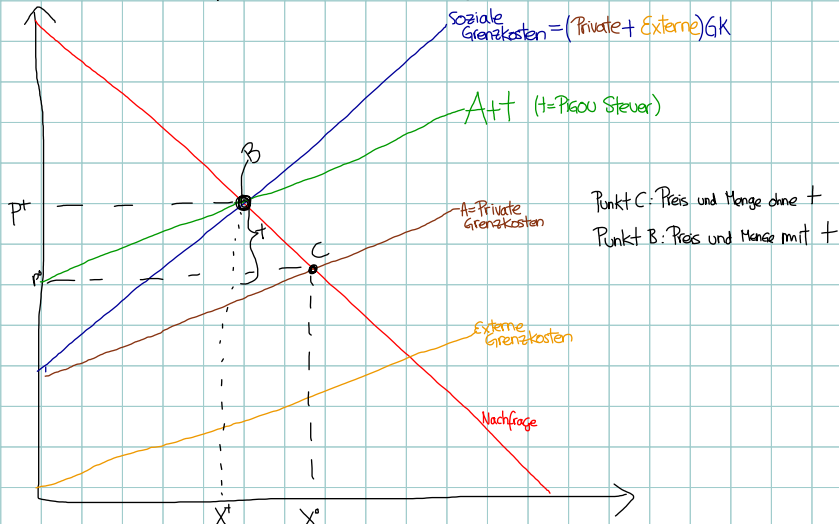 Soziale
Grenzkosten = (Private + Externe) GK
A+t (t=PIGOU Steuer)
B
Pt
A=Private
Grenzkosten
Punkt C: Preis und Menge ohne t
Punkt B: Preis und Menge mit t
t
C
P°
Externe
Grenzkosten
Nachfrage
Xt
X°